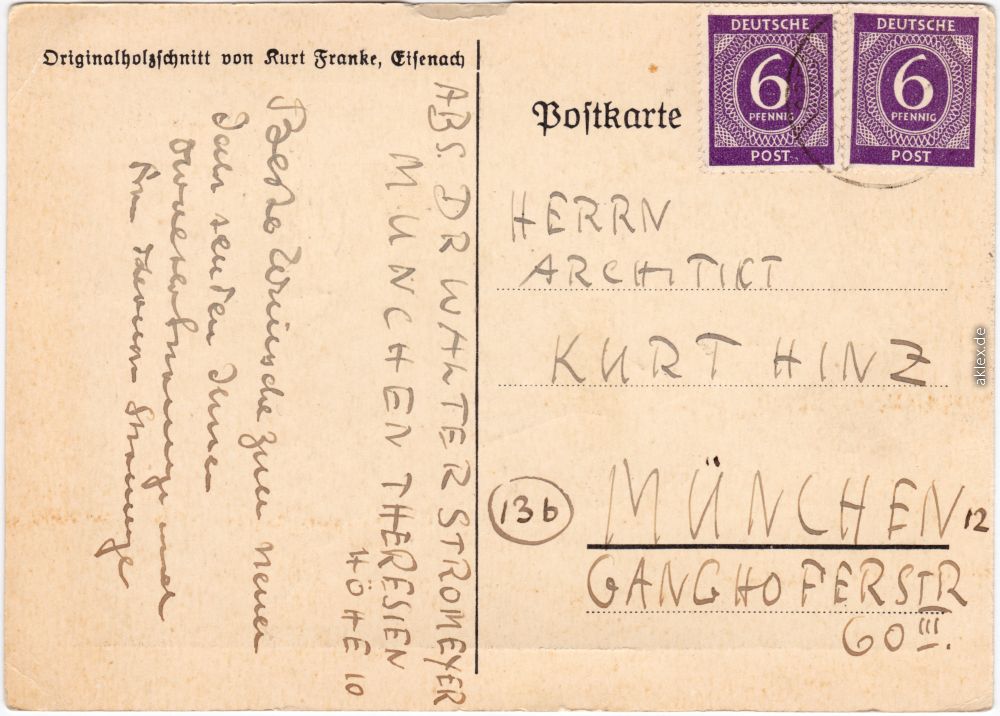 Originalholzschnitt von Kurt Franke, Eisenach
ABS. DR WALTER STROMEYER
MÜNCHEN THERESIEN
HÖHE 10
Beste Wünsche zum neuen
Jahr senden Ihnen
und
Postkarte
DEUTSCHE
6
PFENNIG
POST
DEUTSCHE
6
PFENNIG
POST
HERRN
ARCHITIKT
KURT HINZ
13b
MÜNCHEN 12
GANGHOFERSTR
60 III.
aklex.de